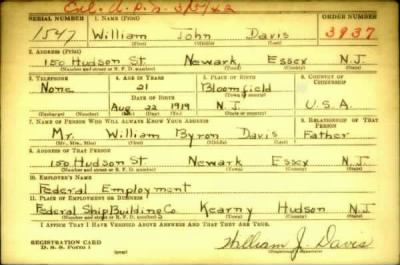 SERIAL NUMBER 1. NAME (Print) ORDER NUMBER
1547 William John Davis 3937
(First) (Middle) (Last)
2. ADDRESS (Print)
150 Hudson St. Newark Essex N.J.
(Number and street or R. F. D. number) (Town) (County) (State)
3. TELEPHONE 4. AGE IN YEARS 5. PLACE OF BIRTH 6. COUNTRY OF CITIZENSHIP
None 21 Bloomfield
DATE OF BIRTH (Town or county)
Aug 22 1919 N.J. U.S.A.
(Exchange) (Number) (Mo.) (Day) (Yr.) (State or country)
7. NAME OF PERSON WHO WILL ALWAYS KNOW YOUR ADDRESS 8. RELATIONSHIP OF THAT PERSON
Mr. William Byron Davis Father
(Mr., Mrs., Miss) (First) (Middle) (Last)
9. ADDRESS OF THAT PERSON
150 Hudson St Newark Essex N.J.
(Number and street or R. F. D. number) (Town) (County) (State)
10. EMPLOYER'S NAME
Federal Employment
11. PLACE OF EMPLOYMENT OR BUSINESS
Federal Ship Building Co Kearny Hudson N.J.
(Number and street or R. F. D. number) (Town) (County) (State)
I AFFIRM THAT I HAVE VERIFIED ABOVE ANSWERS AND THAT THEY ARE TRUE.
REGISTRATION CARD
D. S. S. FORM 1 (over) William J. Davis
(Registrant's signature)